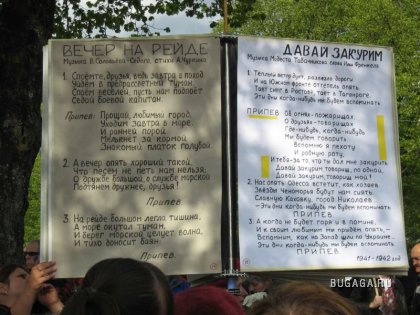 ВЕЧЕР НА РЕЙДЕ
Музыка В. Соловьёва-Седого, стихи А. Чуркина
1. Споёмте, друзья, ведь завтра в поход
Уйдём в предрассветный туман.
Споём веселей, пусть нам подпоёт
Седой боевой капитан.
Припев: Прощай, любимый город,
Уходим завтра в море
И ранней порой
Мелькнёт за кормой
Знакомый платок голубой
2. А вечер опять хороший такой,
Что песен не петь нам нельзя;
О дружбе большой, о службе морской
Подтянем дружнее, друзья!
Припев.
3. На рейде большом легла тишина,
А море окутал туман,
И берег морской целует волна,
И тихо доносит баян:
Припев.
ДАВАЙ ЗАКУРИМ
Музыка Модеста Табачникова слова Ильи Френкеля
1. Тёплый ветер дует, развезло дороги,
И на Южном фронте оттепель опять
Тает снег в Ростове, тает в Таганроге.
Эти дни когда-нибудь мы будем вспоминать
ПРИПЕВ Об огнях-пожарищах
О друзьях-товарищах
Где-нибудь, когда-нибудь
Мы будем говорить
Вспомню я пехоту
И родную роту,
И тебя за то, что ты дал мне закурить
Давай закурим, товарищ, по одной,
Давай закурим, товарищ мой!
2. Нас опять Одесса встретит, как хозяев
Звёзды Черноморья будут нам сиять
Славную Каховку, город Николаев
Эти дни когда-нибудь мы будем вспоминать
ПРИПЕВ.
3. А когда не будет и в помине,
И к своим любимым мы придём опять,
Вспомним, как на Запад шли по Украине.
Эти дни когда-нибудь мы будем вспоминать
ПРИПЕВ.
1941-1942 год
BUGAGA.RU